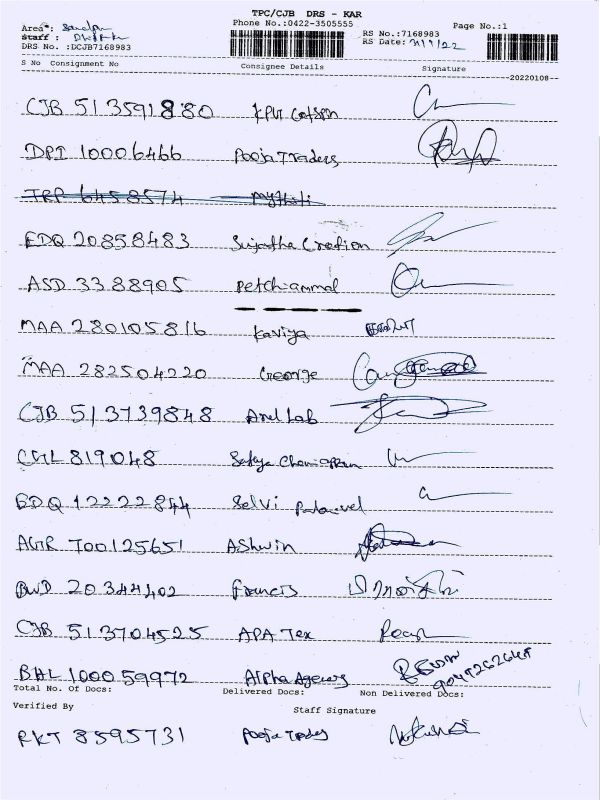 TPC/CJB DRS - KAR
Phone No.:0422-3505555
Page No.:1
Area :
Staff :
RS No.:7168983
DRS No. :DCJB7168983
RS Date:
S No Consignment No Consignee Details Signature
20220108
CJB 513591880
DPI 10006466 Pooja Traders
TRP 6458574 Mythili
EDQ 20858483 Sujatha Creation
ASD 3388905 Petchiammal
MAA 280105816 Kaviya
MAA 282504220 George
CJB 513739848 Arul Lab
CGL 819048
EDQ 12222844 Selvi
AGR 700125651 Ashwin
BWD 20344402 Francis
CJB 513704525 APA Tex
BHL 100059972 Alpha Agency
Total No. Of Docs: Delivered Docs: Non Delivered Docs:
Verified By Staff Signature
RKT 8595731 Pooja Trades